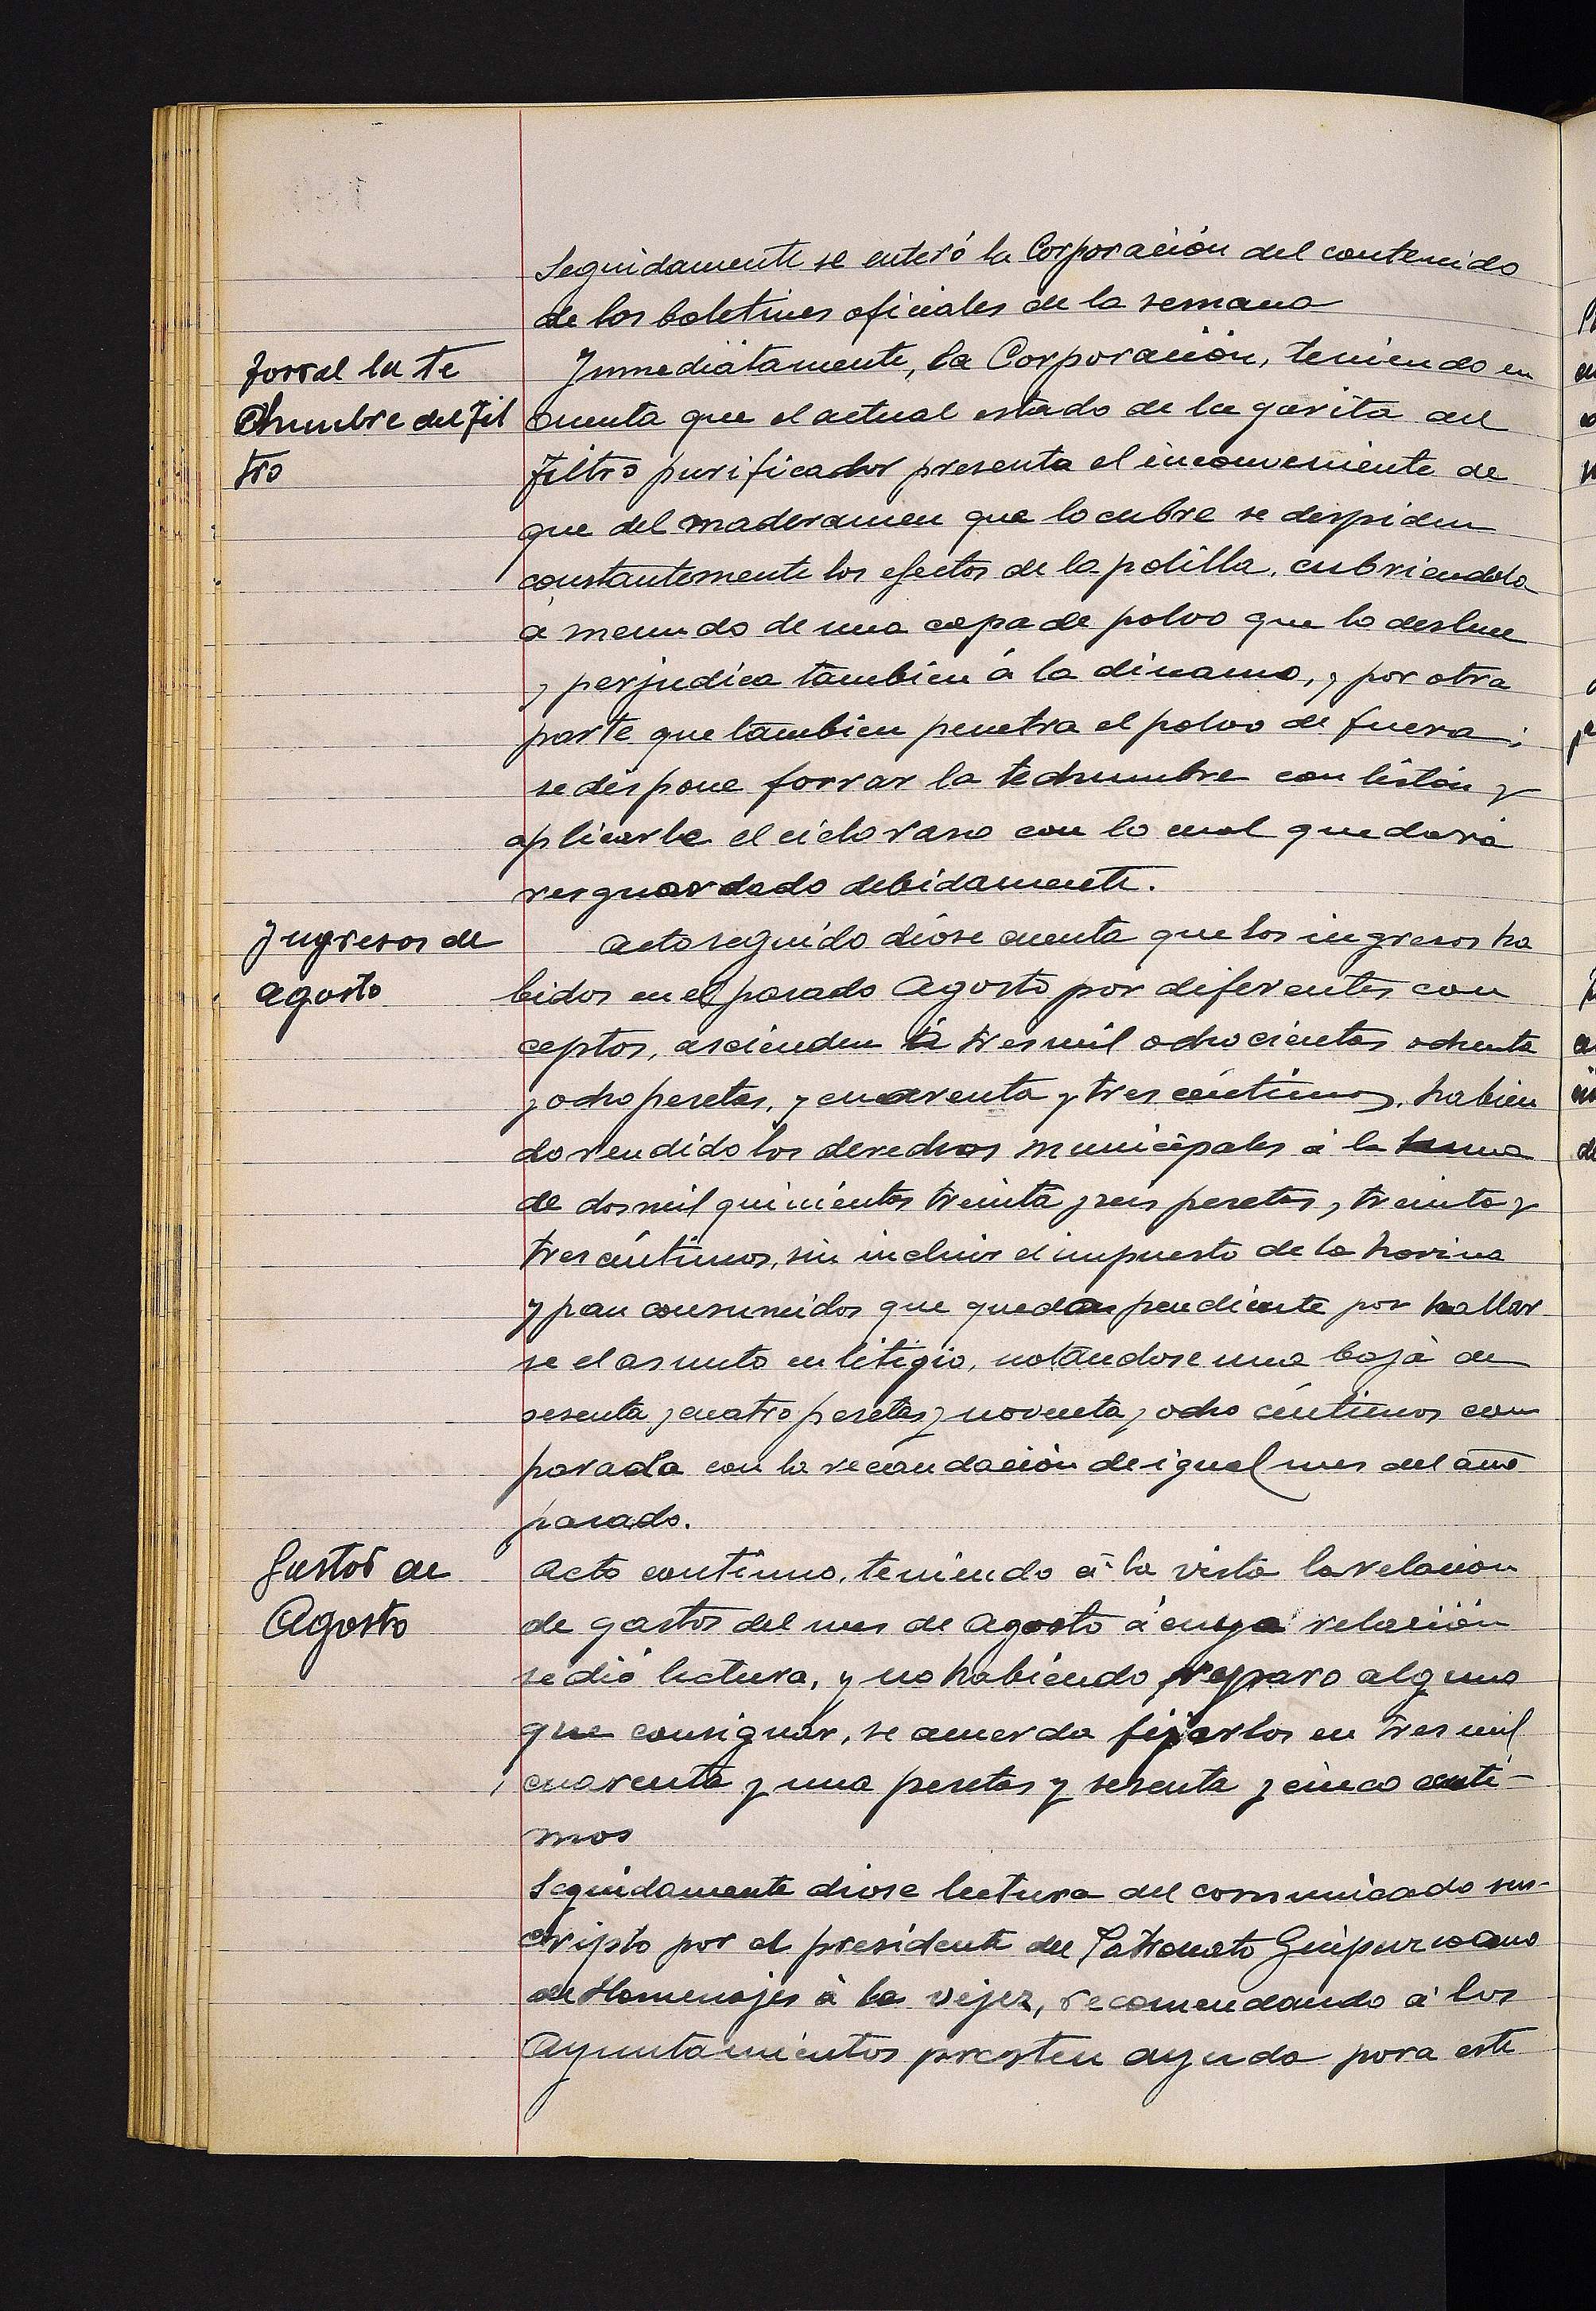 Seguidamente se enteró la Corporación del contenido
de los boletines oficiales de la semana
Forral la te
chumbre del Fil
tro
Inmediatamente, la Corporación, teniendo en
cuenta que el actual estado de la garita del
Filtro purificador presenta el inconveniente de
que del maderamen que lo cubre se despiden
constantemente los efectos de la polilla, cubriendola
á menudo de una capa de polvo que lo desluce
y perjudica tambien á la dinamo, y por otra
parte que tambien penetra el polvo de fuera;
se dispone forrar la techumbre con listón y
aplicarle el cielo raso con lo cual quedará
resguardado debidamente.
Ingresos de
Agosto
Acto seguido dióse cuenta que los ingresos ha
bidos en el pasado Agosto por diferentes con
ceptos, ascienden á tres mil ochocientas ochenta
y ocho pesetas, y cuarenta y tres céntimos, habien
do rendido los derechos municipales á la suma
de dos mil quinientas treinta y seis pesetas, treinta y
tres céntimos, sin incluir el impuesto de la harina
y pan consumidos que quedan pendiente por hallar
se el asunto en litigio, notándose una baja de
sesenta y cuatro pesetas y noventa y ocho céntimos com
parada con la recaudación de igual mes del año
pasado.
Gastos de
Agosto
Acto continuo, teniendo á la vista la relacion
de gastos del mes de Agosto á cuya relación
se dió lectura, y no habiendo reparo alguno
que consignar, se acuerda fijarlos en tres mil
cuarenta y una pesetas y sesenta y cinco centi-
mos
Seguidamente diose lectura del comunicado sus-
cripto por el presidente del Patronato Guipuzcoano
de Homenajes á la vejez, recomendando á los
Ayuntamientos presten ayuda para este